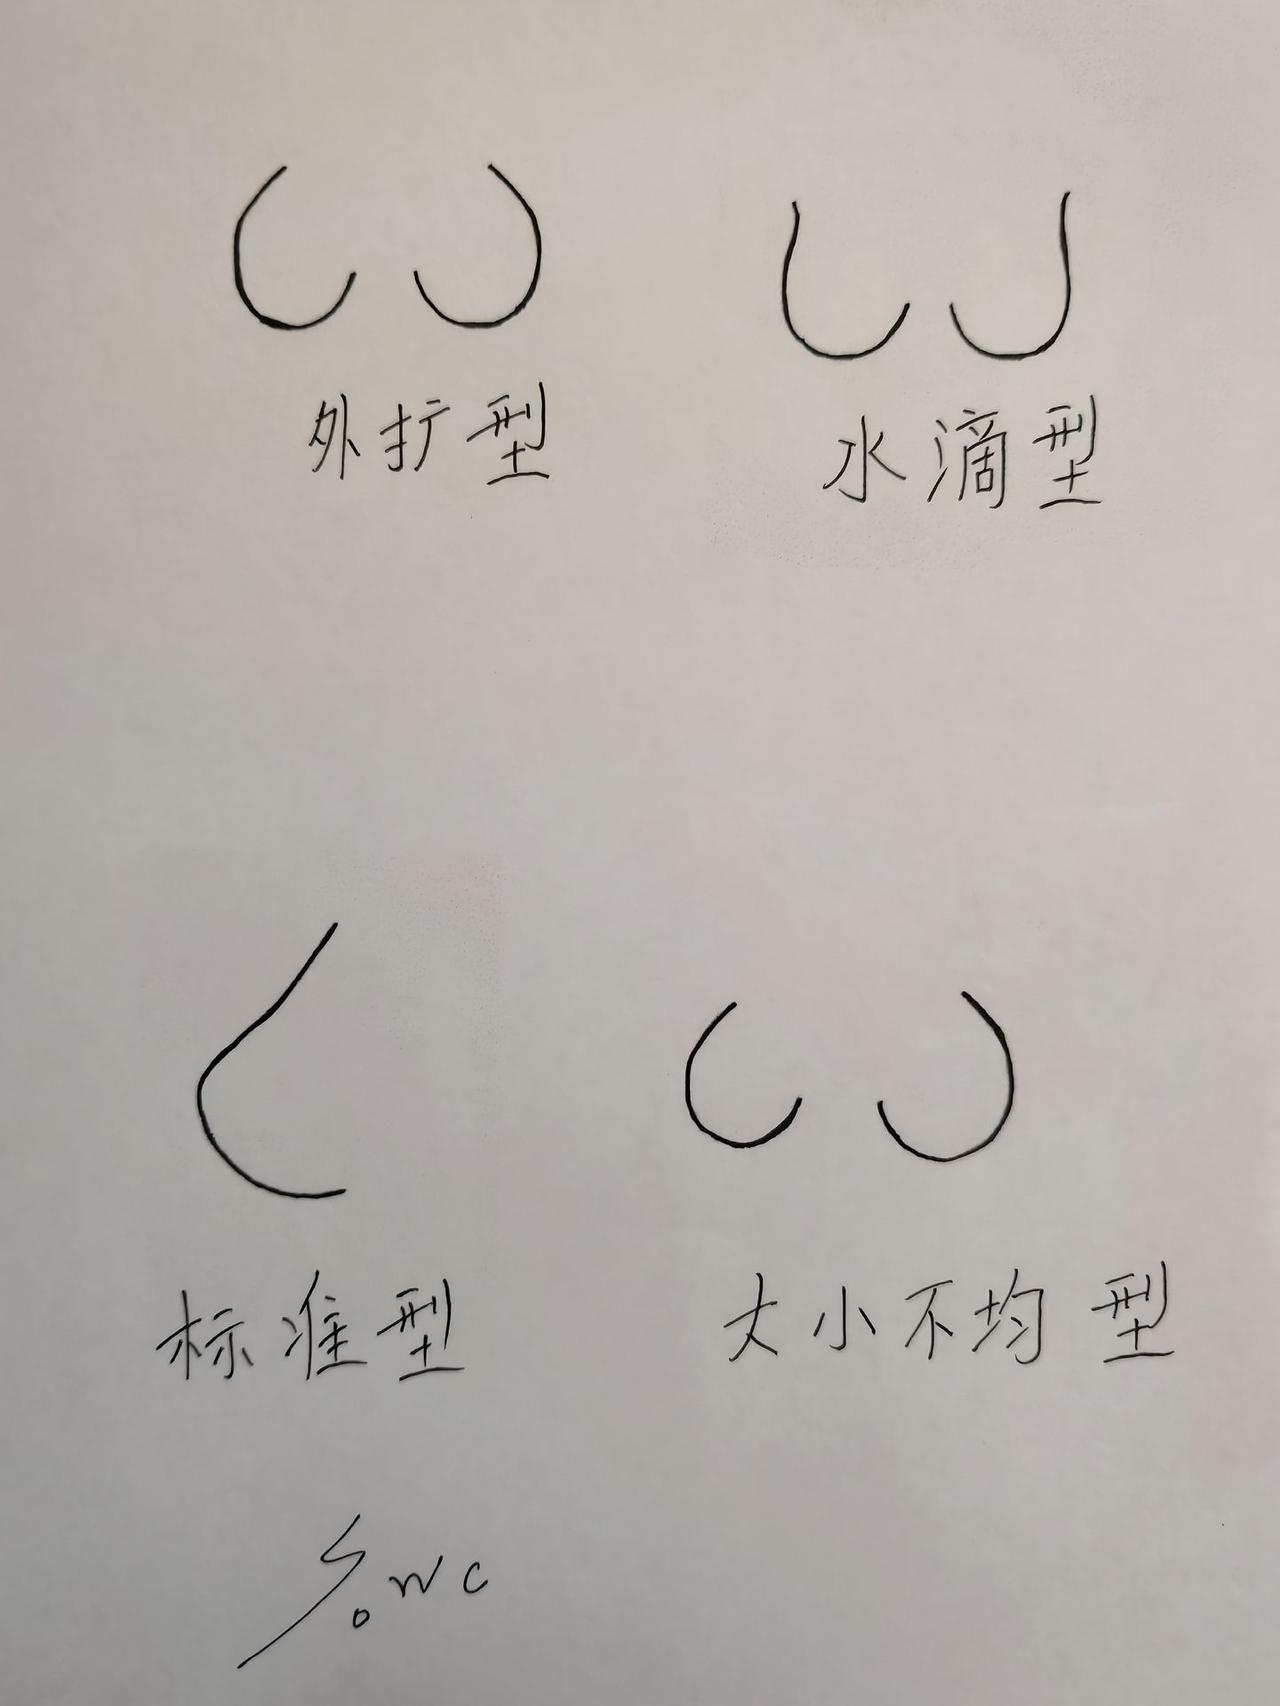 外扩型
水滴型
标准型
大小不均型